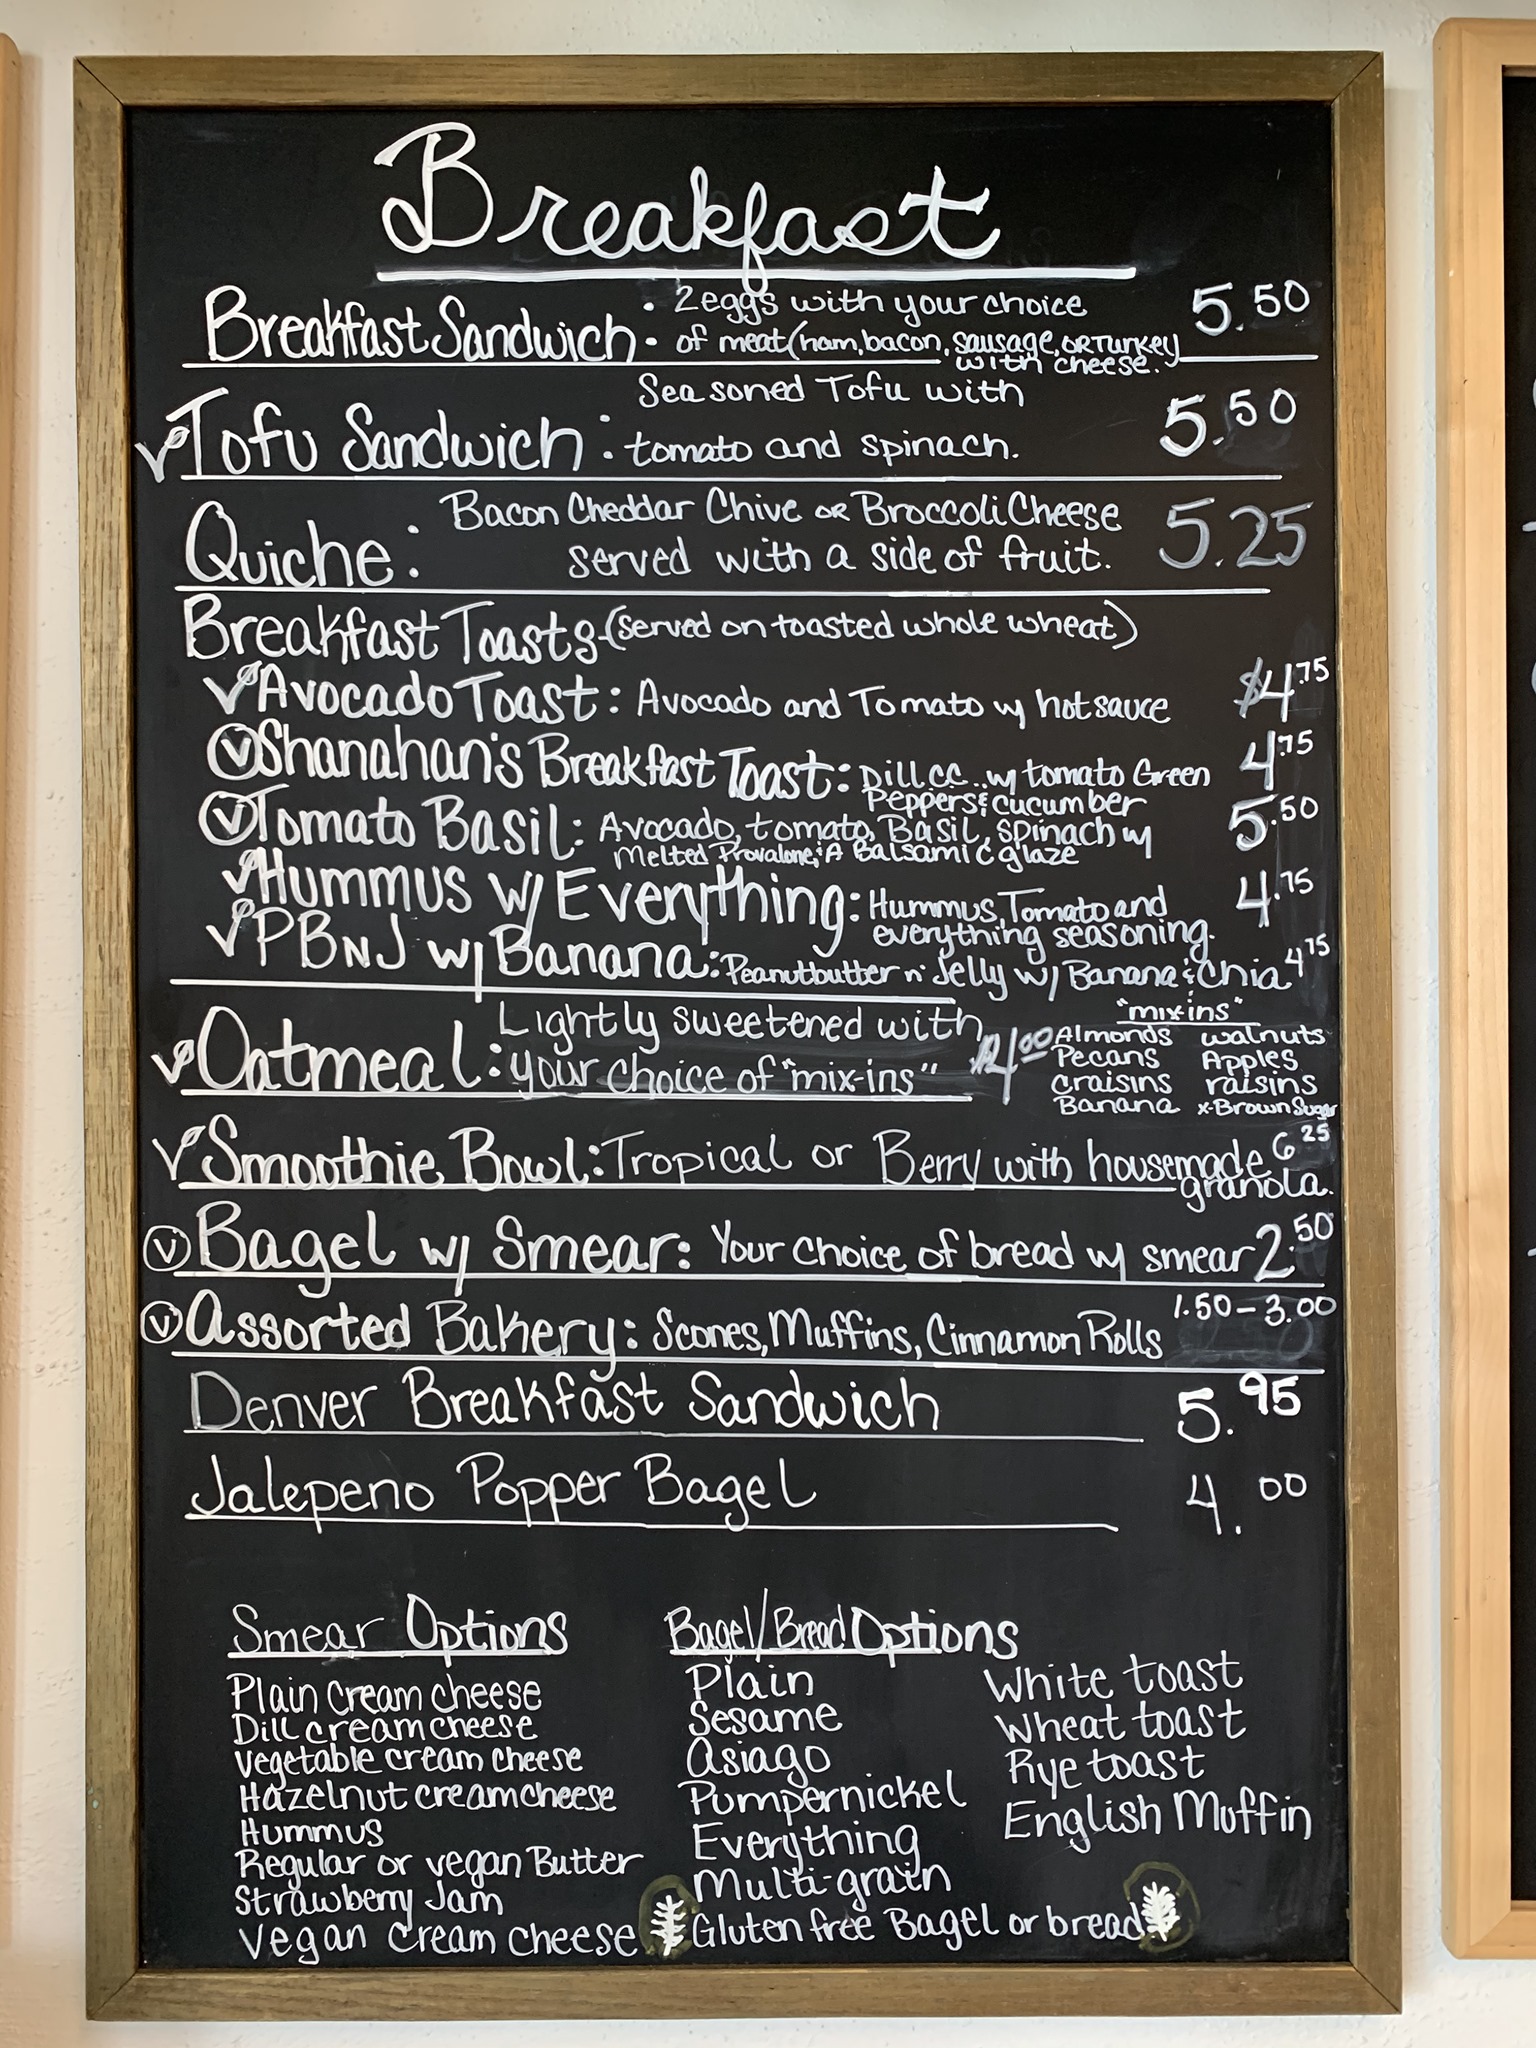 Breakfast
Breakfast Sandwich • 2 eggs with your choice 5.50
• of meat (ham, bacon, sausage, OR Turkey
with cheese.
Seasoned Tofu with
V Tofu Sandwich: tomato and spinach. 5.50
Quiche: Bacon Cheddar Chive OR Broccoli Cheese 5.25
served with a side of fruit.
Breakfast Toasts (served on toasted whole wheat)
V Avocado Toast: Avocado and Tomato w/ hot sauce $4.75
V Shanahan's Breakfast Toast: Dill CC w/ tomato Green 4.75
Peppers & cucumber
V Tomato Basil: Avocado, tomato, Basil, spinach w/ 5.50
Melted Provalone, & A Balsamic glaze
V Hummus w/ Everything: Hummus, Tomato and 4.75
everything seasoning.
V PBnJ w/ Banana: Peanutbutter n' Jelly w/ Banana & Chia 4.75
V Oatmeal: Lightly sweetened with
your choice of "mix-ins" $4.00
"mix-ins"
Almonds walnuts
Pecans Apples
craisins raisins
Banana x-Brown Sugar
V Smoothie Bowl: Tropical or Berry with housemade 6.25
granola.
V Bagel w/ Smear: Your choice of bread w/ smear 2.50
V Assorted Bakery: Scones, Muffins, Cinnamon Rolls 1.50-3.00
Denver Breakfast Sandwich 5.95
Jalepeno Popper Bagel 4.00
Smear Options
Plain cream cheese
Dill cream cheese
Vegetable cream cheese
Hazelnut cream cheese
Hummus
Regular or vegan Butter
Strawberry Jam
Vegan cream cheese
Bagel/Bread Options
Plain
Sesame
Asiago
Pumpernickel
Everything
Multi-grain
Gluten free Bagel or bread
White toast
Wheat toast
Rye toast
English Muffin